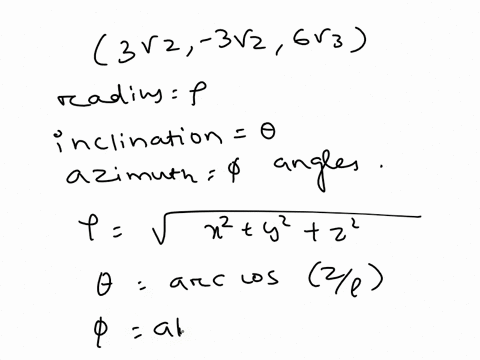 (3√2, -3√2, 6√3)
radius = ρ
inclination = θ
azimuth = φ angles.
ρ = √x² + y² + z²
θ = arc cos (z/ρ)
φ = a